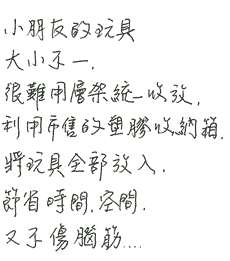 小朋友的玩具
大小不一.
很難用層架統一收放,
利用市售的塑膠收納箱.
將玩具全部放入.
節省時間.空間.
又不傷腦筋....